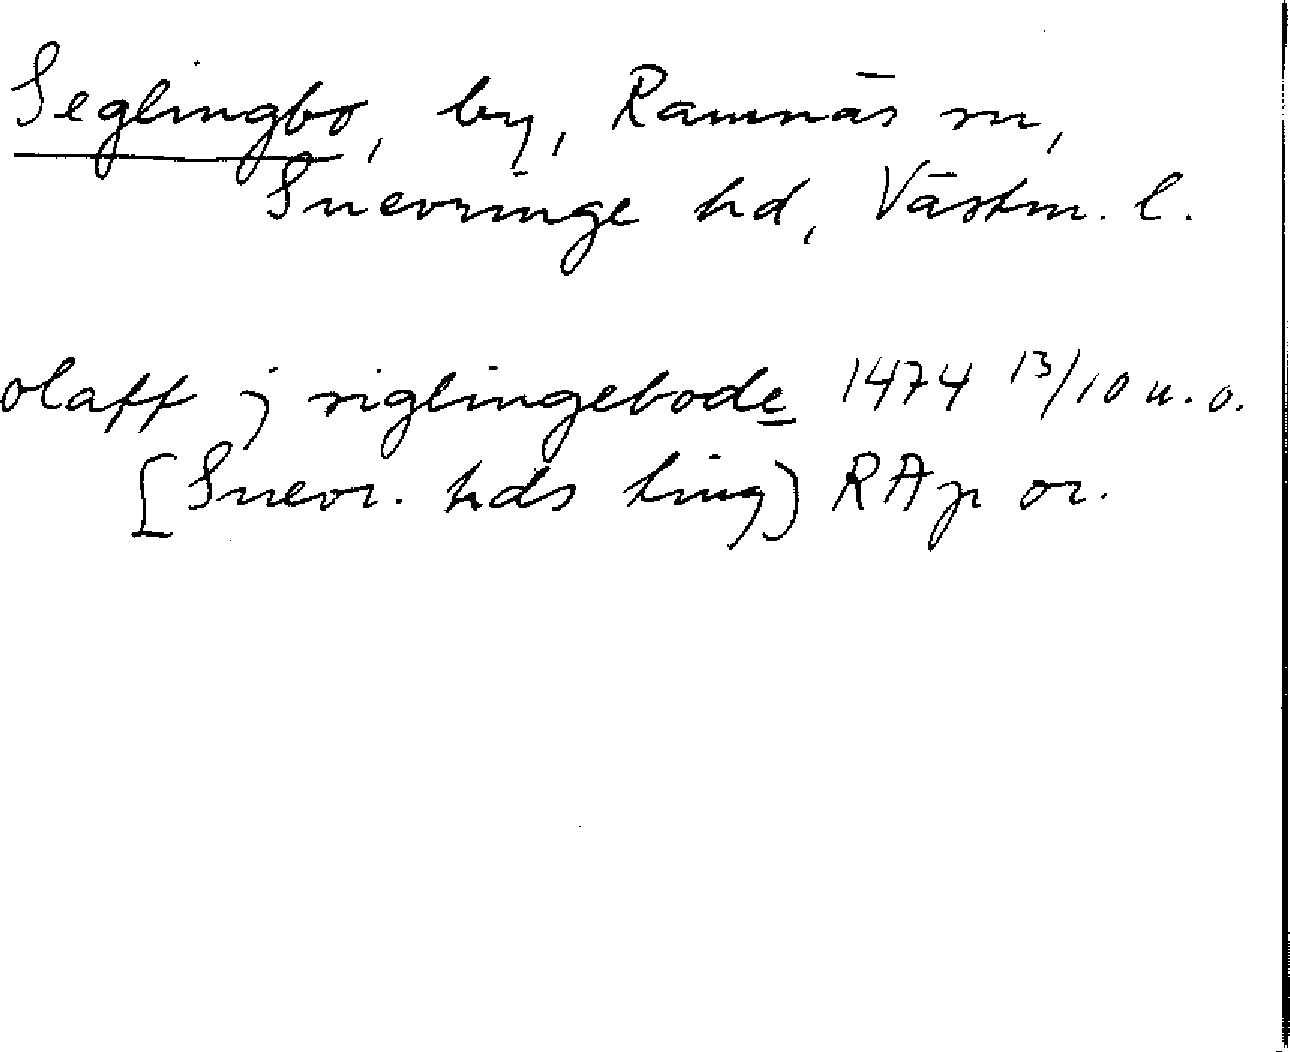 Seglingbo, by, Ramnäs sn,
Snevringe hd, Västm. l.
olaff j siglingebode 1474 13/10 u. o.
[Snevr. hds ting) RAp or.